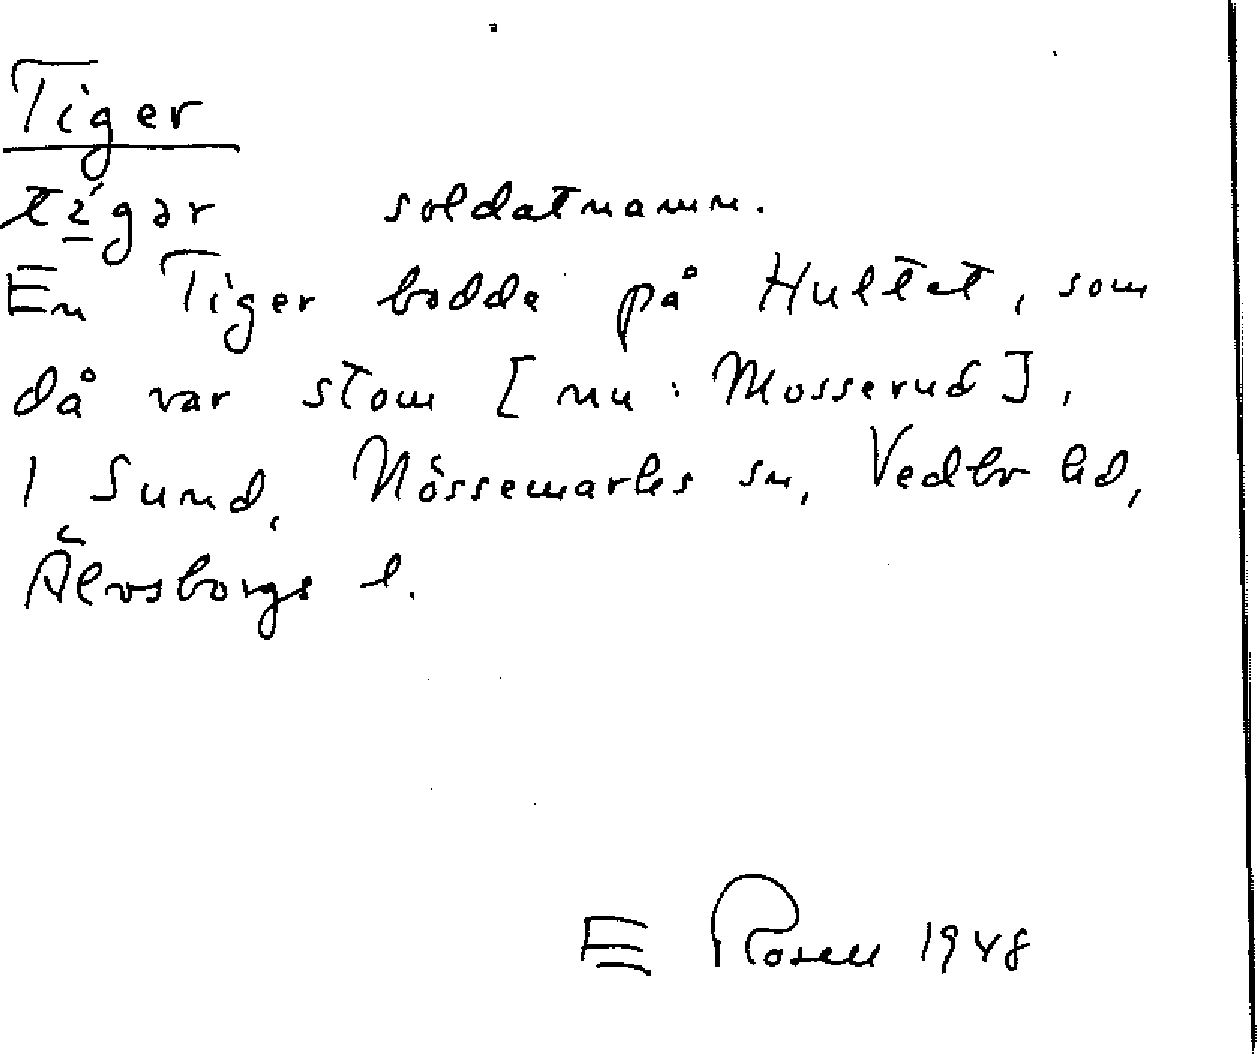 Tiger
tı̲́gər soldatnamn.
En Tiger bodde på Hultet, som
då var stom [nu: Mosserud],
i Sund, Nössemarks sn, Vedbo hd,
Älvsborgs l.
E Rosell 1948